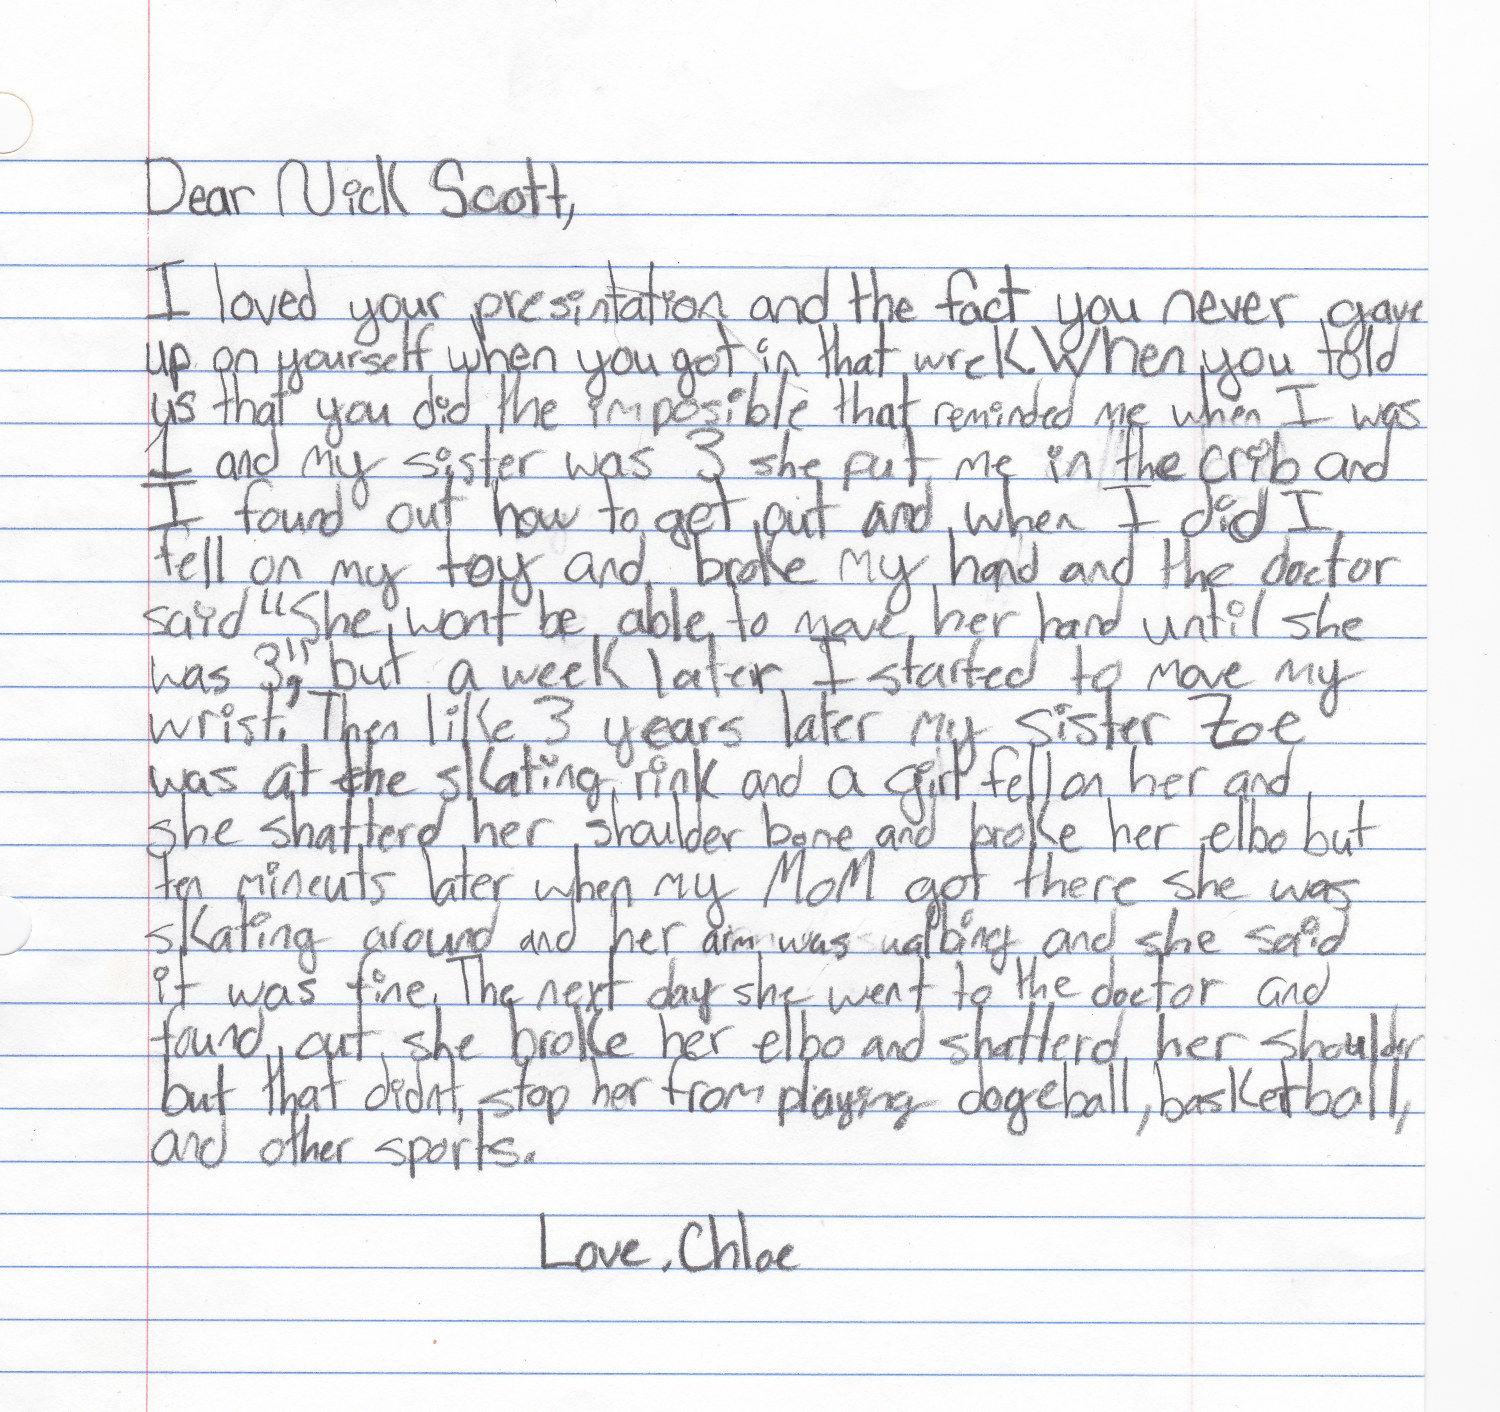 Dear Nick Scott,
I loved your presintation and the fact you never gave
up on yourself when you got in that wrek. When you told
us that you did the imposible that reminded me when I was
1 and my sister was 3 she put me in the crib and
I found out how to get out and when I did I
fell on my toy and broke my hand and the doctor
said "She wont be able to move her hand until she
was 3", but a week later I started to move my
wrist. Then like 3 years later my sister Zoe
was at the skating rink and a girl fell on her and
she shatterd her shoulder bone and broke her elbo but
ten mineuts later when my MoM got there she was
skating around and her arm was walbing and she said
it was fine. The next day she went to the doctor and
found out she broke her elbo and shatterd her shoulder
but that didnt stop her from playing dogeball, basketball,
and other sports.
Love, Chloe